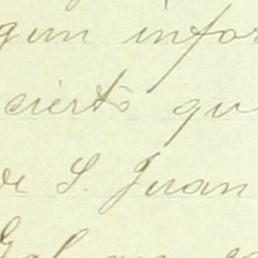 gun infor
cierto qu
de S. Juan